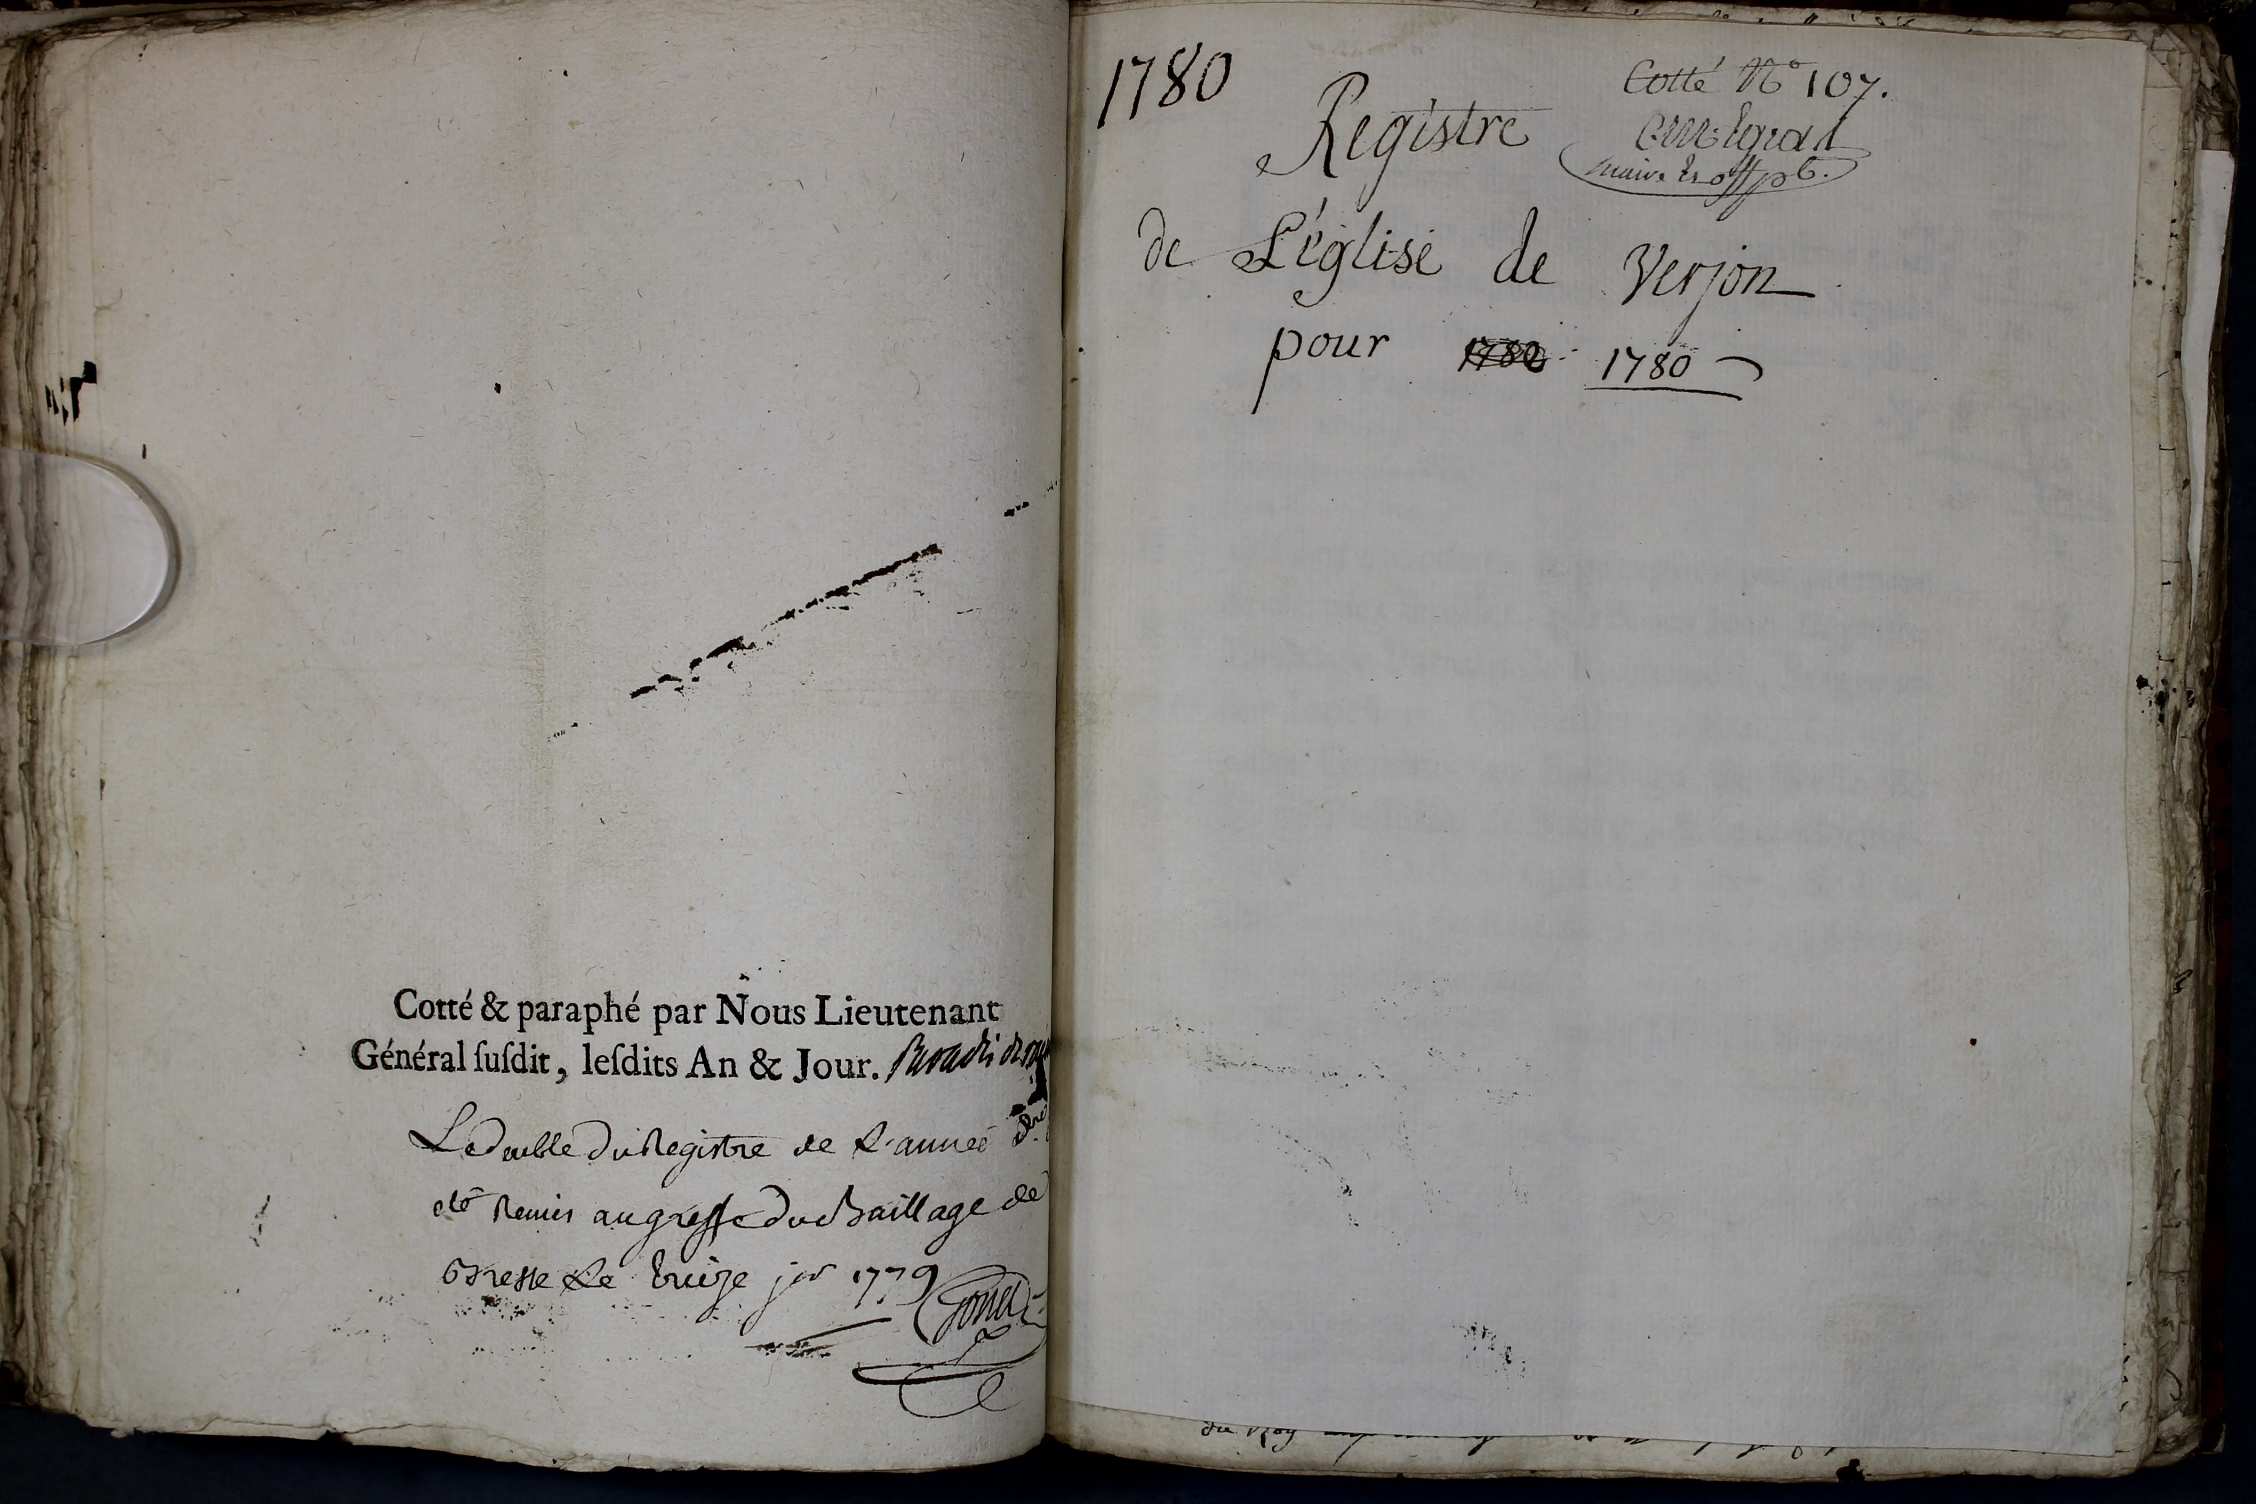 Cotté & paraphé par Nous Lieutenant
Général ſuſdit, leſdits An & Jour.
Le double du Registre de L'année
été Remis au greffe du Baillage de
Bresse Le treize jer 1779
1780
Cotté No 107.
maire et off pb.
Registre
de L'église de Verjon
pour 1780 1780